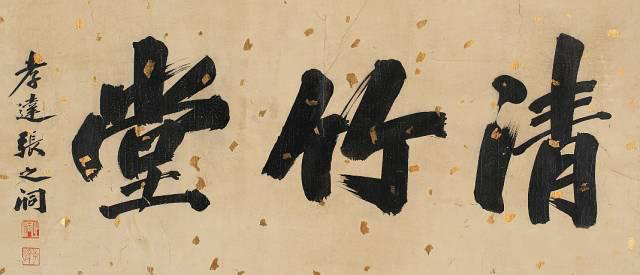 清竹堂
孝達張之洞